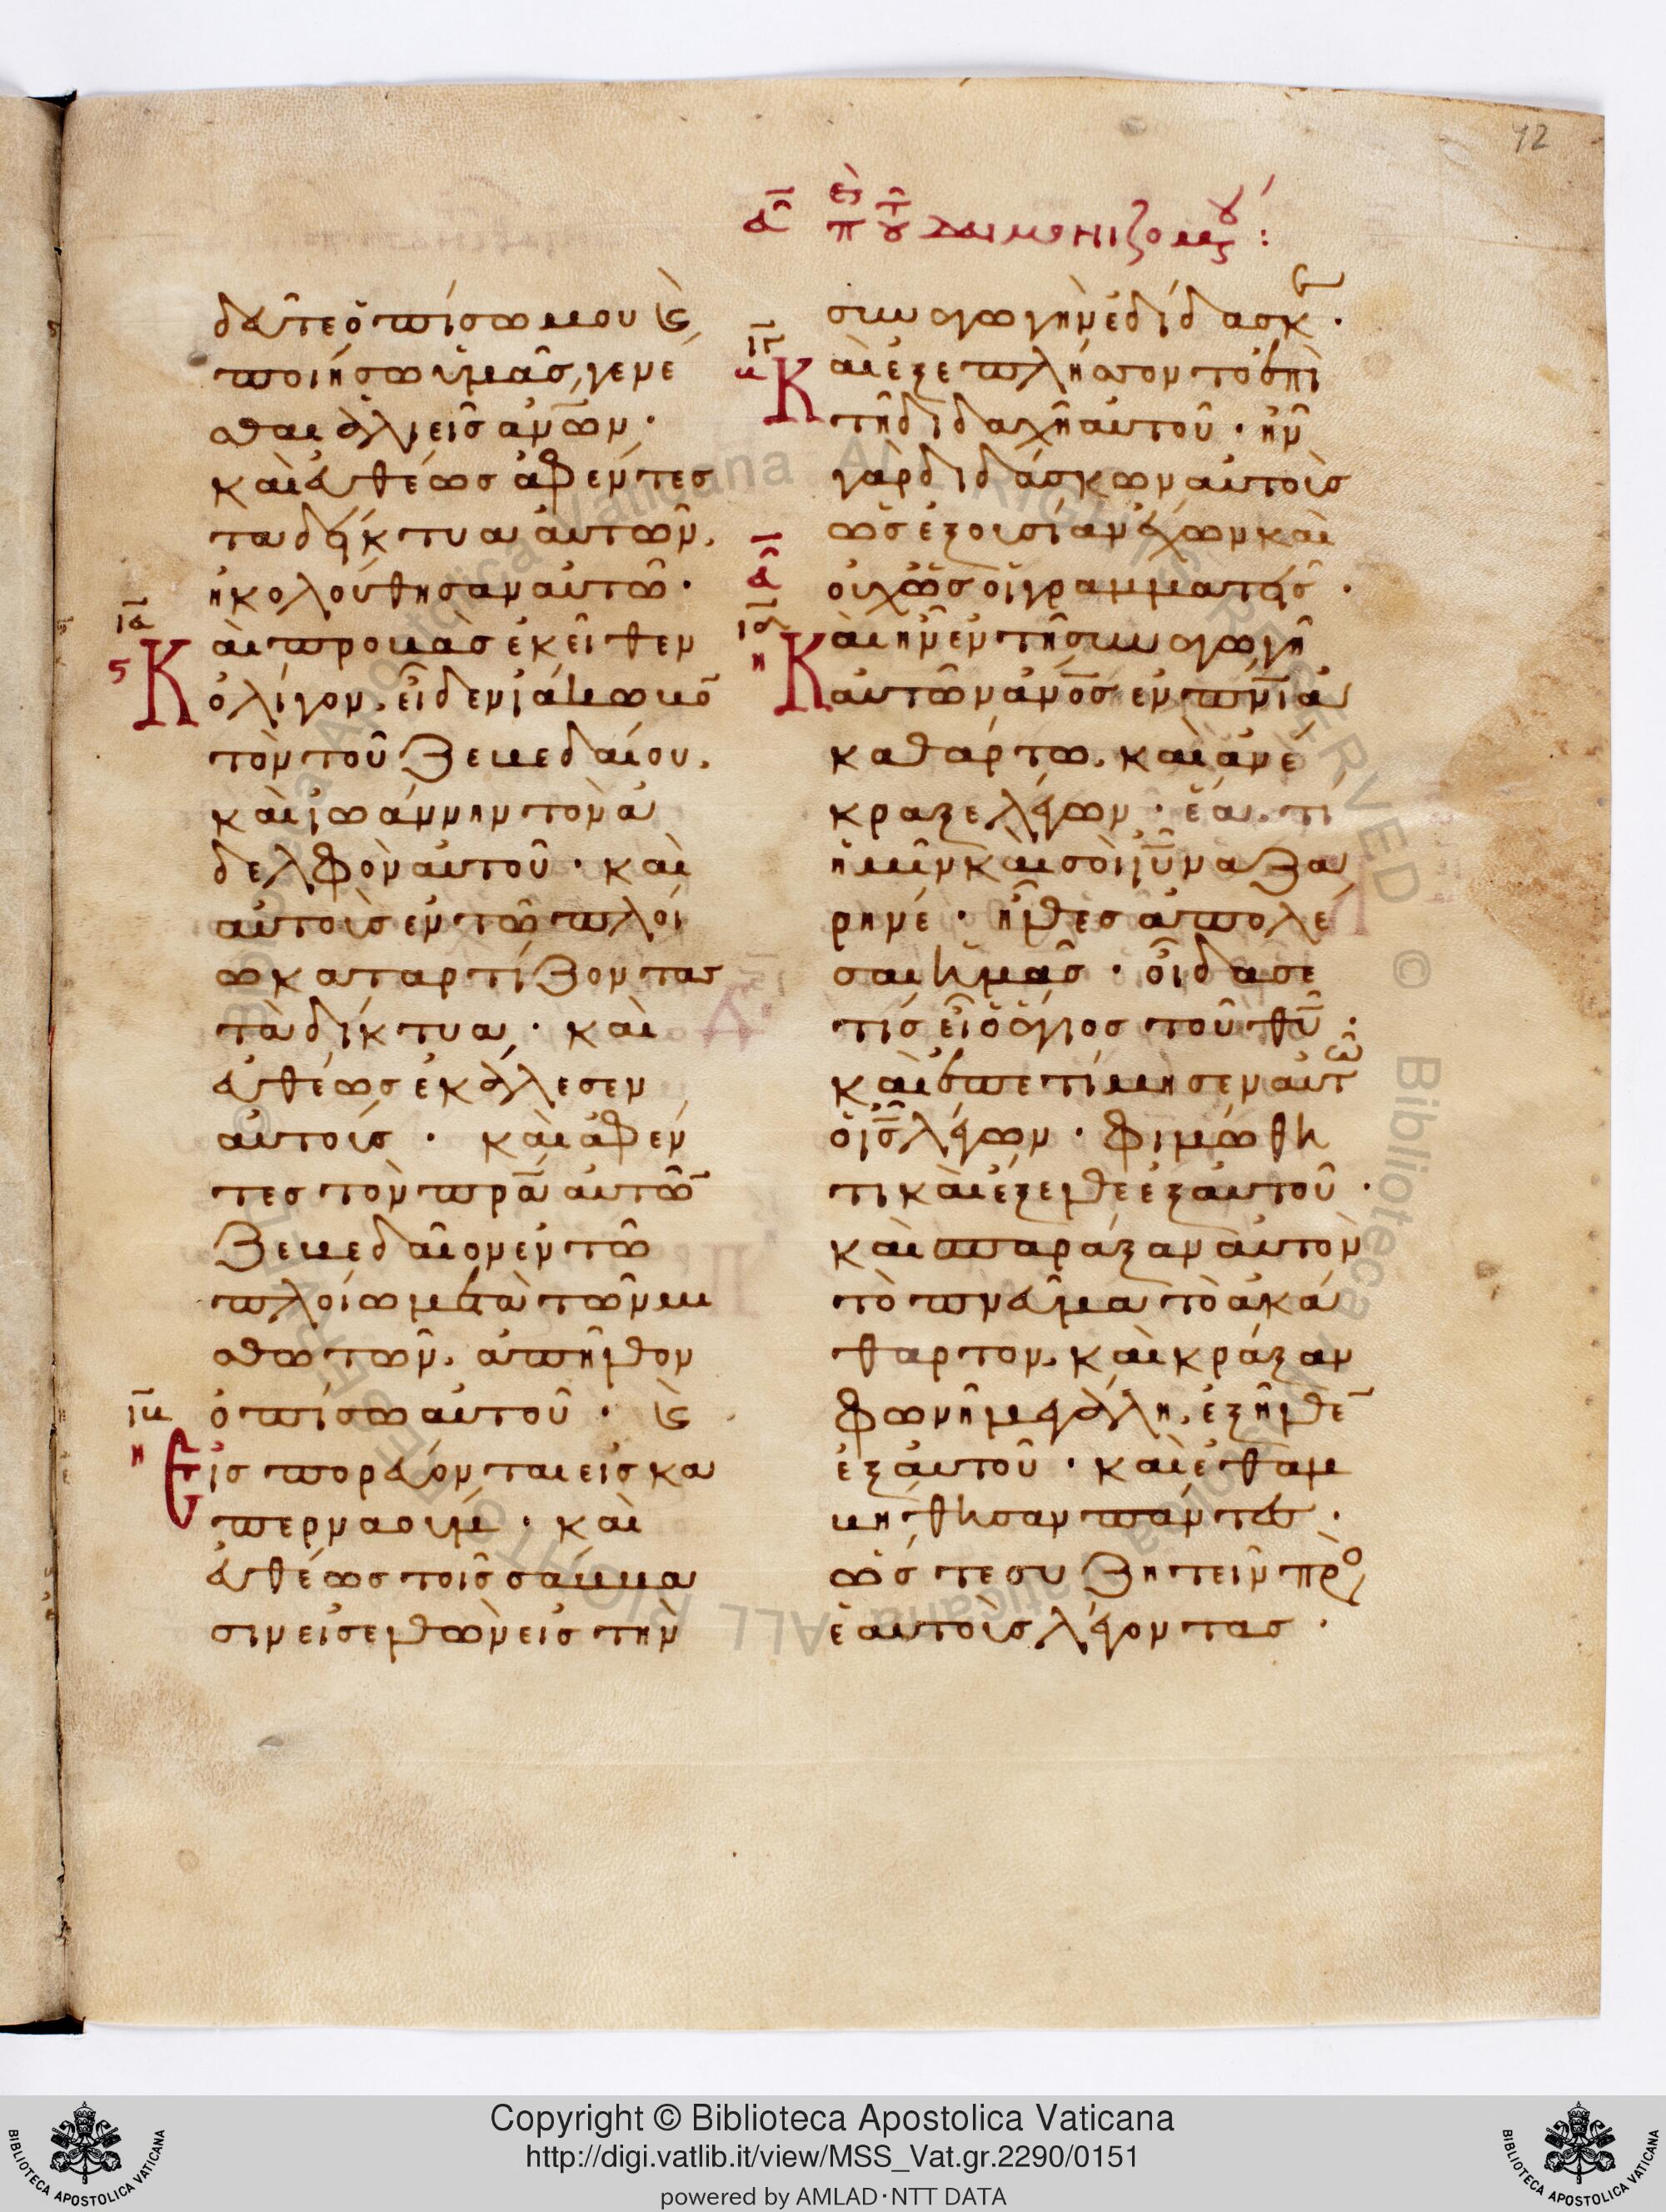 42
α περὶ τοῦ δαιμονιζομένου:
δεῦτε ὀπίσω μου καὶ
ποιήσω ὑμᾶς γενέ
σθαι ἁλιεῖς ἀνων·
καὶ εὐθέως ἀφέντες
τα δίκτυα αὐτῶν,
ἠκολούθησαν αὐτῶ·
ια
ς
Καὶ προβὰς ἐκεῖθεν
ὀλίγον, εἶδεν ϊάκωβο
τὸν τοῦ ζεβεδαίου,
καὶ ϊωάννην τὸν ἀ
δελφὸν αὐτοῦ· καὶ
αὐτοὺς ἐν τῶ πλοί
ω καταρτίζοντας
τὰ δίκτυα· καὶ
εὐθέως ἐκάλεσεν
αὐτούς· καὶ ἀφέν
τες τὸν πρα αὐτῶ
ζεβεδαῖον ἐν τῶ
πλοίω μετὰ τῶν μι
σθωτῶν, ἀπῆλθον
ὀπίσω αὐτοῦ· καὶ
ιβ
η
Εἰσπορεύονται εἰς κα
περναούμ· καὶ
εὐθέως τοῖς σάββα
σιν εἰσελθὼν εἰς τὴν
συναγωγὴν ἐδίδασκεν·
ιγ
β
Καὶ ἐξεπλήσσοντο ἐπὶ
τῆ διδαχῆ αὐτοῦ· ἦν
γὰρ διδάσκων αὐτοὺς
ὡς ἐξουσίαν ἔχων καὶ
α
οὐχ ὡς οἱ γραμματεῖς·
ιδ
η
Καὶ ἦν ἐν τῆ συναγωγῆ
αὐτῶν ἀνος ἐν πνι ἀ
καθάρτω, καὶ ἀνέ
κραξε λέγων· ἔα, τί
ἡμῖν καὶ σοὶ ιυ ναζα
ρηνέ· ἦλθες ἀπολέ
σαι ἡμᾶς· οἶδα σε
τίς εἶ ὁ ἅγιος τοῦ θυ·
καὶ ἐπετίμησεν αὐτῶ
ὁ ις λέγων· φιμώθη
τι καὶ ἔξελθε ἐξ αὐτοῦ·
καὶ σπαράξαν αὐτὸν
τὸ πνεῦμα τὸ ἀκά
θαρτον, καὶ κράξαν
φωνῆ μεγάλη, ἐξῆλθε
ἐξ αὐτοῦ· καὶ ἐθαμ
βήθησαν πάντες·
ὥστε συζητεῖν πρὸς
ἑαυτοὺς λέγοντας·
Copyright © Biblioteca Apostolica Vaticana
http://digi.vatlib.it/view/MSS_Vat.gr.2290/0151
powered by AMLAD·NTT DATA
BIBLIOTECA APOSTOLICA VATICANA
BIBLIOTECA APOSTOLICA VATICANA